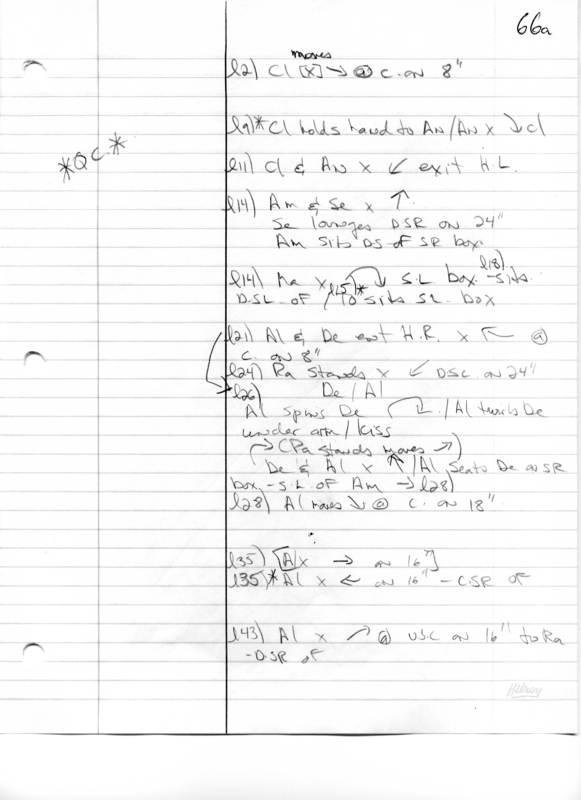 66a
moves
l2) Cl [x] → @ C. on 8"
l9)* Cl holds hand to An/An x ↓ cl
*QC.*
l11) Cl & An x ↙ exit H.L.
l14) Am & Se x ↑
Se lounges DSR on 24"
Am sits DS of SR box.
l14) Ra x ↓ S.L box. l18) -sits.
D.S.L. of / l15)* To sits SL. box
l21) Al & De ent H.R. x ↖ @
C. on 8"
l24) Ra stands x ↙ DSC on 24"
l26) De/Al
Al spins De /Al twirls De
under arm/kiss
→ (Ra stands moves →)
De & Al x ↑ /Al Seats De on SR
box - S.L. of Am → l28)
l28) Al moves ↓ @ C. on 18"
l35) [Al x → on 16"]
l35)* Al x ← on 16" - C.SR of
l43) Al x ↗ @ USC on 16" to Ra
-DSR of
Hilroy